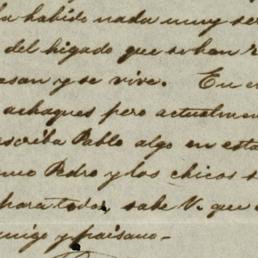 ha habido nada muy se
del higado que se han r
asan y se vive. En e
achaques pero actualmen
scriba Pablo algo en esta
mo Pedro y los chicos s
para todos, sabe V. que
migo y paisano.-